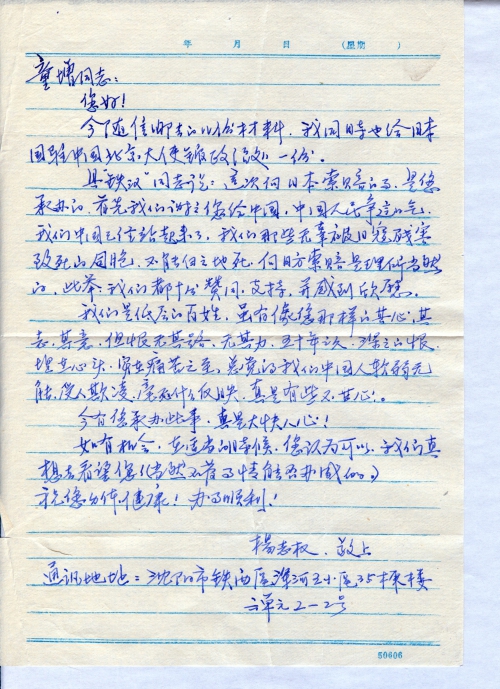 年 月 日 (星期 )
童增同志：
您好！
今随信邮去的此份材料，我同时也给日本
国驻中国北京大使馆邮了一份。
具“铁汉”同志说：这次向日本索赔的事，是您
承办的，首先我们谢谢您给中国，中国人民争这口气，
我们中国已经站起来了，我们那些无辜被日寇残害
致死的同胞，不能白白地死，向日方索赔是理所当然
的，此举我们都十分赞同，支持，并感到欣慰。
我们是低层的百姓，虽有像您那样的其心，其
志，其意，但恨无其路，无其力，五十年之久，深之的恨，
埋在心头，实在痛苦之至，总觉的我们中国人软弱无
能，受人欺凌，真是有些不甘心。
今有您承办此事，真是大快人心！
如有机会，在适当的时候，您认为可以，我们真
想去看望您！（当然不管事情能否办成的。）
祝您身体健康！办事顺利！
楊志权 敬上
通讯地址：沈阳市铁西区滑河王小区35栋楼
二单元2-2号
50606